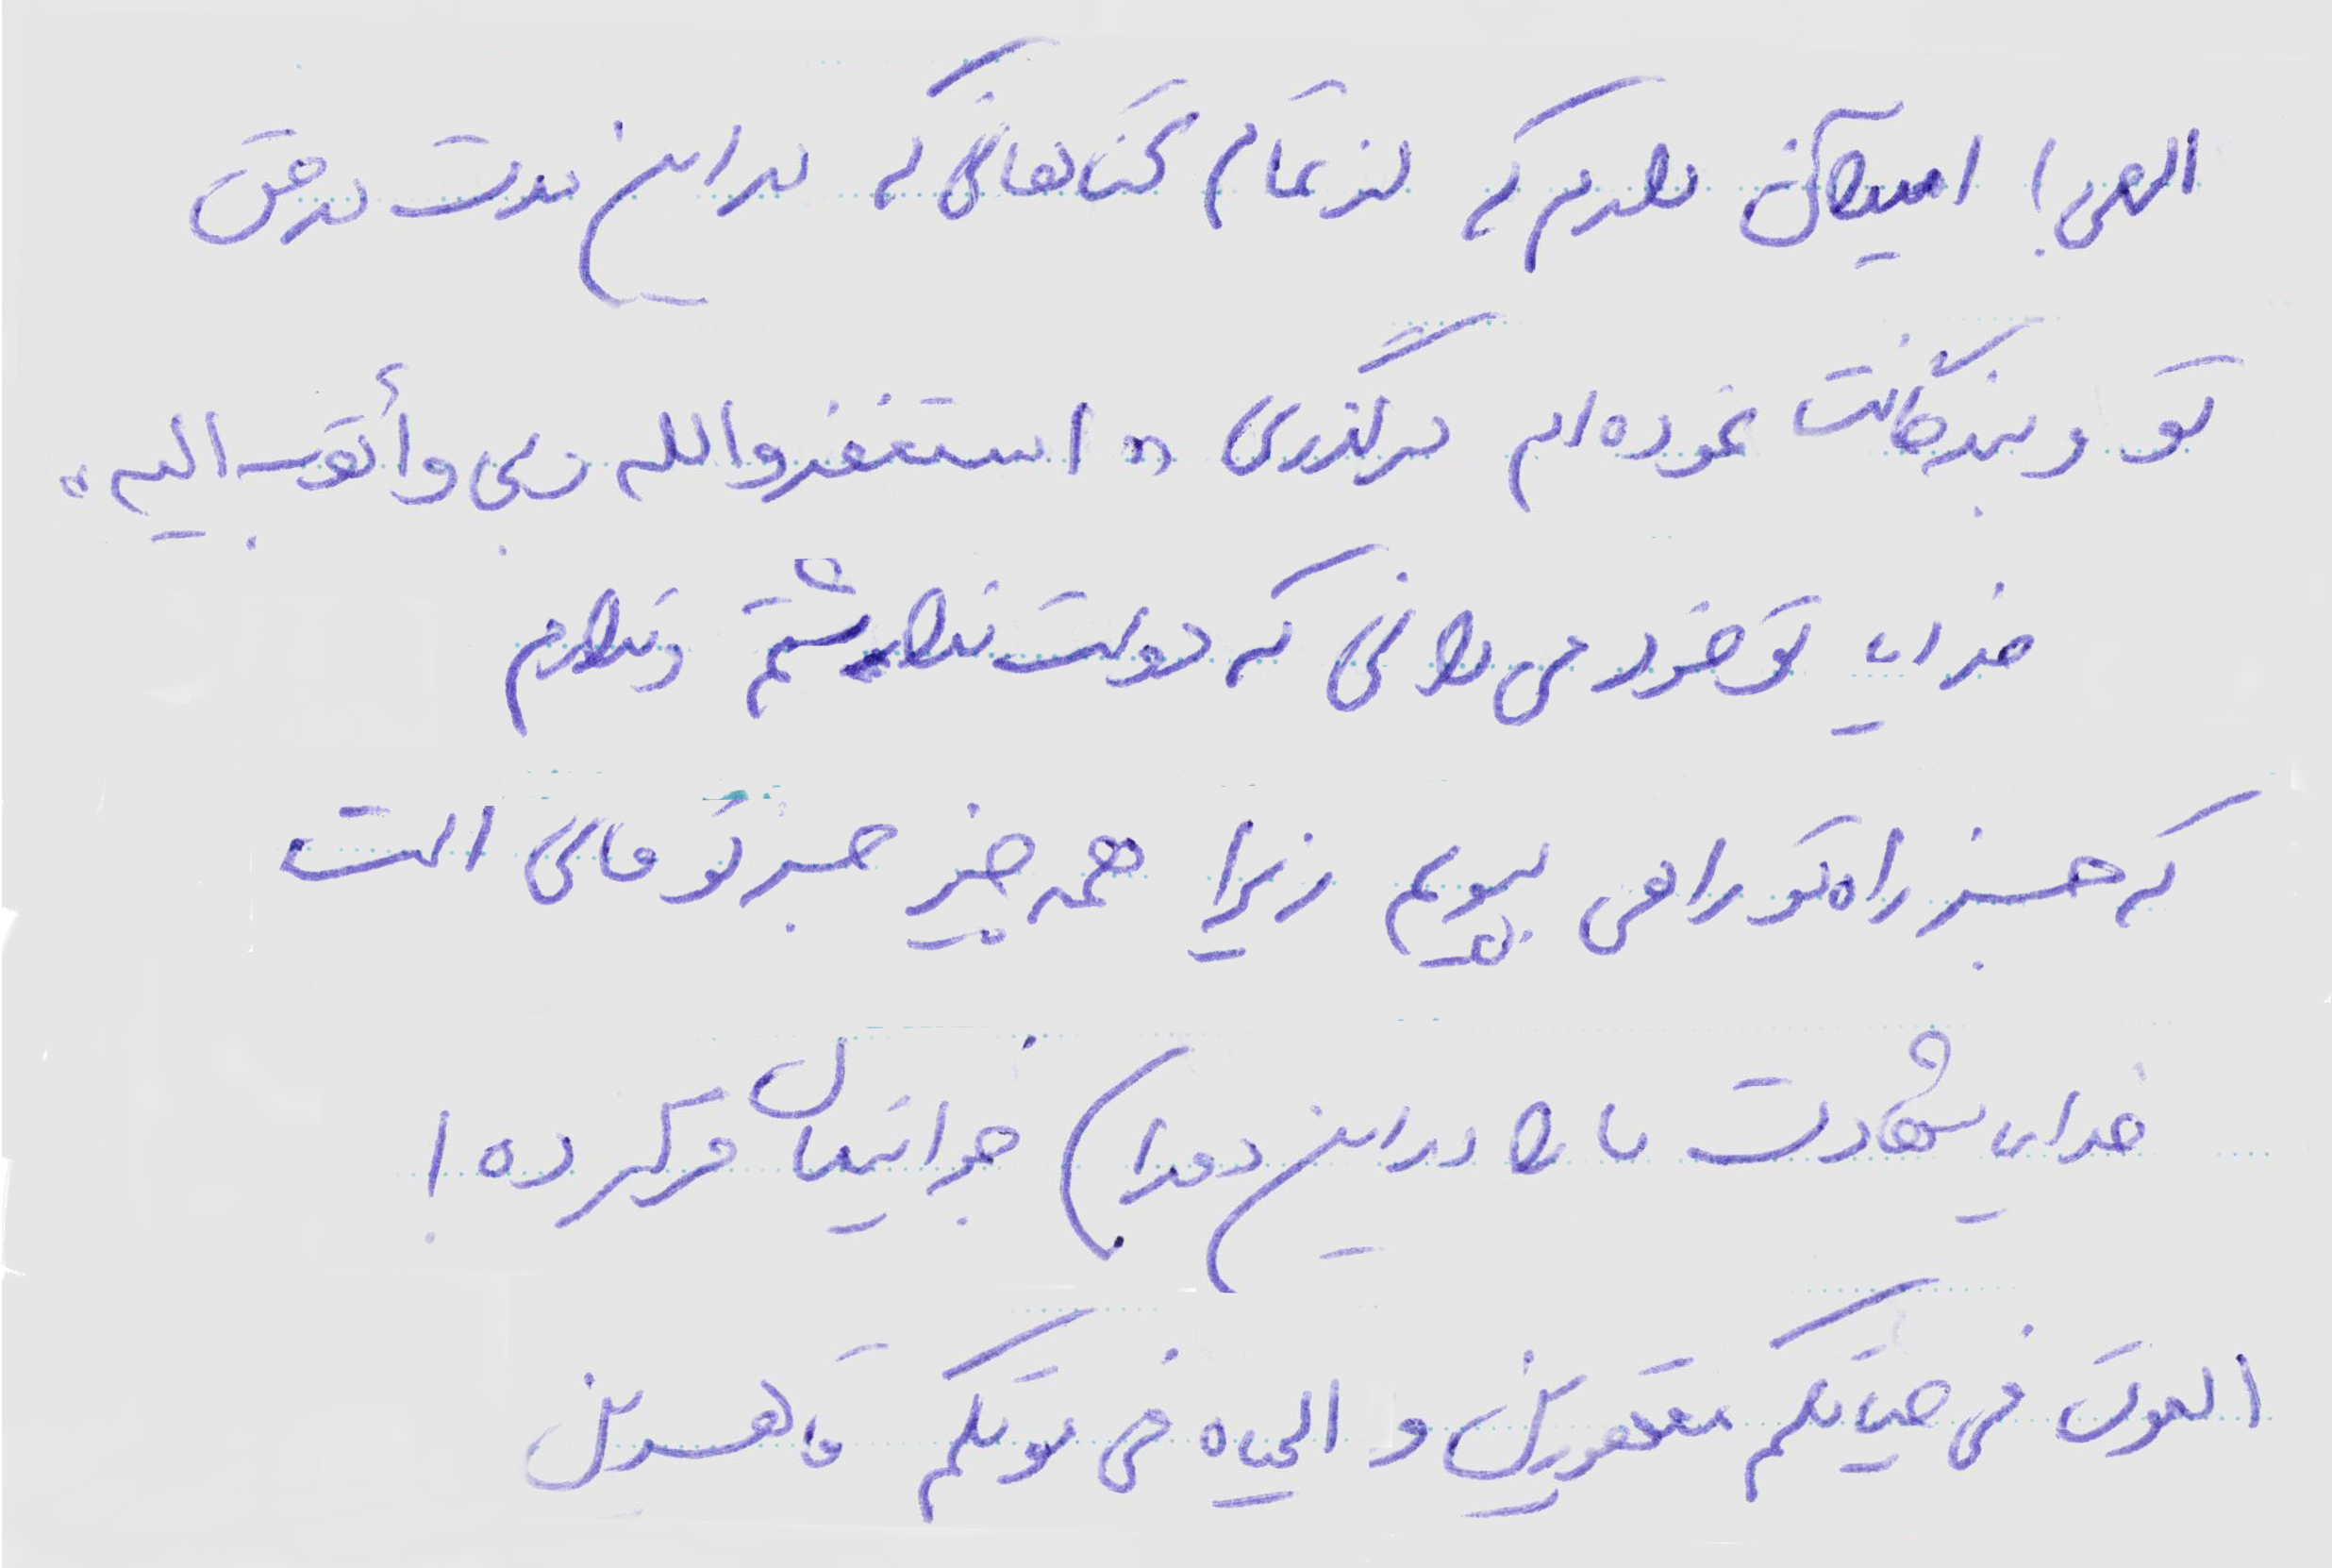 الهی! امید آن دارم که از تمام گناهانی که در این مدت در حق
تو و بندگانت نموده ام درگذری «استغفروالله ربی وأتوب الیه»
خدایا تو خود می دانی که دوست نداشتم و ندارم
که جز راه تو راهی بپویم زیرا همه چیز جز تو فانی است
خدایا شهادت ما را در این دعوا) جبرانیمان قرار ده!
الموت فی حیاتکم مقهورین و الحیاه فی موتکم قاهرین